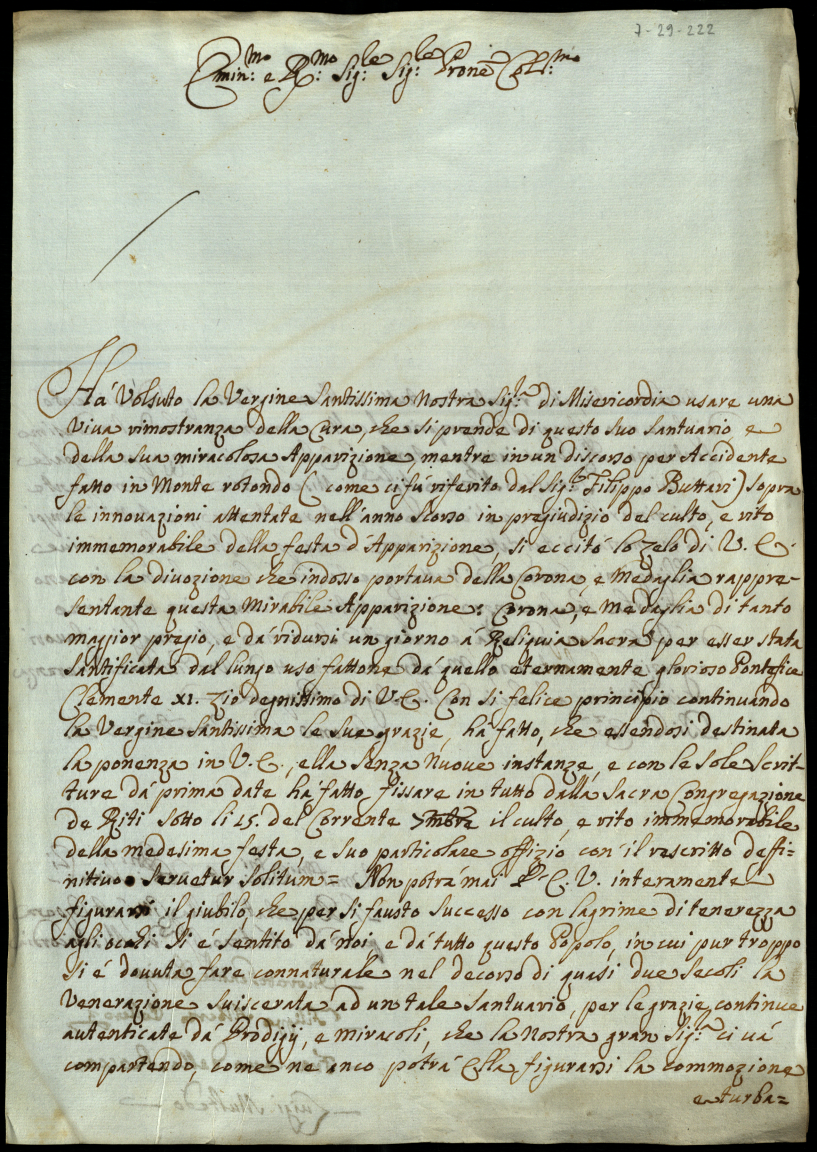 7-29-222
Emin:mo e R:mo Sig:le Sig:le Prone Col:mo
Há Volsuto la Vergine Santissima Nostra Sig:ra di Misericordia usare una
Viva rimostranza della Cura, che si prende di questo suo Santuario, e
della sua miracolosa Apparizione, mentre in un discorso per Accidente
fatto in Monte rotondo (come ci fú riferito dal Sig:r Filippo Buttari) sopra
le innovazioni attentate nell'anno scorso in pregiudizio del culto, e rito
immemorabile della festa d'Apparizione, si eccitó lo zelo di V. E.
con la divozione che indosso portava della Corona, e Medaglia rappre-
sentante questa Mirabile Apparizione: Corona, e Medaglia di tanto
maggior pregio, e dá ridursi un giorno á Reliquia Sacra, per esser stata
santificata dal lungo uso fattone dá quello eternamente glorioso Pontefice
Clemente XI. Zio degnissimo di V. E. Con si felice principio continuando
la Vergine Santissima le sue grazie, há fatto, che essendosi destinata
la ponenza in V. E., ella senza nuove instanze, e con le sole Scrit-
ture dá prima date há fatto fissare in tutto dalla Sacra Congregazione
de Riti sotto li 15. del Corrente 7mbre il culto, e rito immemorabile
della medesima festa, e suo particolare offizio con il rescritto deffi-
nitivo Servetur Solitum= Non potrá mai l'E. V. interamente
figurarsi il giubilo, che per si fausto successo con lagrime di tenerezza
agli occhi si é sentito dá noi, e dá tutto questo Popolo, in cui pur troppo
si é dovuta fare connaturale nel decorso di quasi due secoli la
Venerazione suiscerata ad un tale Santuario, per le grazie continue
autenticate dá Prodigij, e miracoli, che la Nostra gran Sig:ra ci vá
compartendo, come ne anco potrá Ella figurarsi la commozione
e turba=